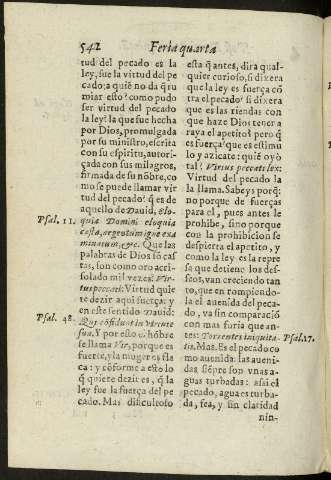 542
Feria quarta
tud del pecado es la
ley, fue la virtud del pe
cado: a quiē no da q̄ ru
miar esto? como pudo
ser virtud del pecado
la ley? la que fue hecha
por Dios, promulgada
por su ministro, escrita
con su espiritu, autori-
çada con sus milagros,
firmada de su nōbre, co
mo se puede llamar vir
tud del pecado? q̄ es de
aquello de Dauid, elo-
Psal. 11.
quia Domini eloquia
casta, argentum igne exa
minatum, &c. Que las
palabras de Dios sō cas
tas, son como oro acri-
solado mil vezes? Vir-
tus peccati: Virtud quie
re dezir aqui fuerça: y
en este sentido Dauid:
Psal. 48.
Qui cōfidunt in virtute
sua. Y por esto el hōbre
se llama Vir, porque es
fuerte, y la muger es fla
ca: y cōforme a esto lo
q̄ quiere dezir es, q̄ la
ley fue la fuerça del pe
cado. Mas dificultoso
esta q̄ antes, dira qual-
quier curioso, si dixera
que la ley es fuerça cō
tra el pecado? si dixera
que es las riendas con
que haze Dios tener a
raya el apetito? pero q̄
es fuerça? que es estimu
lo y azicate? quiē oyò
tal? Virtus peccati lex:
Virtud del pecado la
la llama. Sabeys porq̄?
no porque de fuerças
para el, pues antes le
prohibe, sino porque
con la prohibicion se
despierta el apetito, y
como la ley es la repre
sa que detiene los des-
seos, van creciendo tan
to, que en rompiendo-
la el auenida del peca-
do, va sin comparació
con mas furia que an-
tes: Torrentes iniquita-
Psal. 17.
tis. Mas. Es el pecado co
mo auenida: las aueni-
das sēpre son vnas a-
guas turbadas: assi el
pecado, agua es turba-
da, fea, y sin claridad
nin-